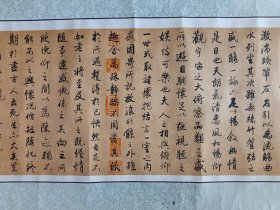 激湍暎帶左右引以為流觴曲
水列坐其次雖無絲竹管弦之
盛一觴一詠亦足以暢敘幽情
是日也天朗氣清惠風和暢仰
觀宇宙之大俯察品類之盛
所以遊目騁懷足以極視聽之
娛信可樂也夫人之相與俯仰
一世或取諸懷抱悟言一室之內
或因寄所託放浪形骸之外雖
趣舍萬殊靜躁不同當其欣
於所遇暫得於己快然自足不
知老之將至及其所之既惓情
隨事遷感慨係之矣向之所
欣俛仰之間以為陳迹猶不
能不以之興懷況脩短隨化終
期於盡古人云死生亦大矣豈